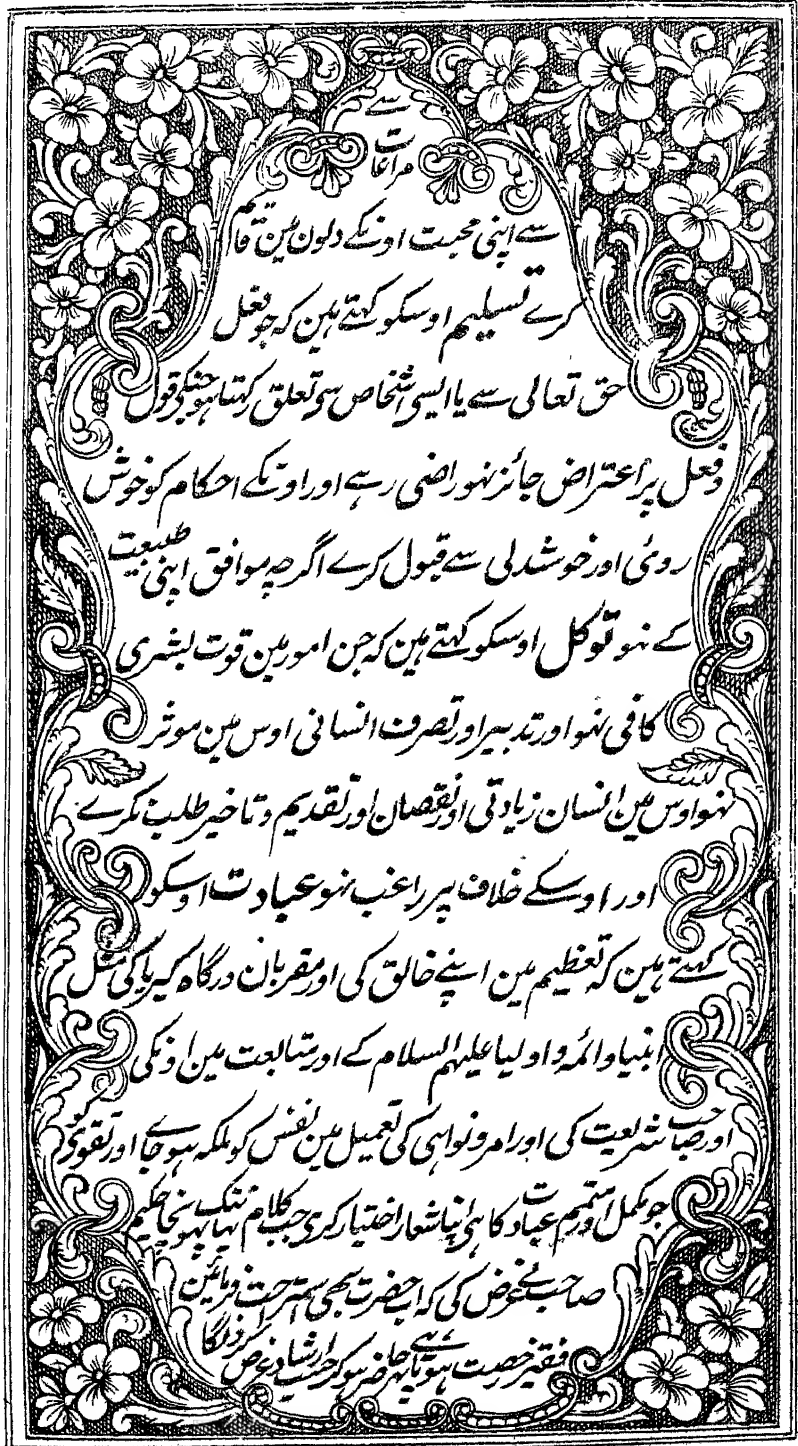 سے
مراعات
سے اپنی محبت اونکے دلون مین قائم
کرے تسلیم اوسکو کہتے ہین کہ جو فعل
حق تعالی سے یا ایسی اشخاص سی تعلق رکہتا ہو جنکی قول
و فعل پر اعتراض جائز نہو راضی رہے اور اونکے احکام کو خوش
روئی اور خوشدلی سے قبول کرے اگرچہ موافق اپنی طبیعت
کے نہو توکل اوسکو کہتے ہین کہ جن امور مین قوت بشری
کافی نہو اور تدبیر اور تصرف انسانی اوس مین موثر
نہو اوس مین انسان زیادتی اور نقصان اور تقدیم و تاخیر طلب نکرے
اور اوسکے خلاف پر راغب نہو عبادت اوسکو
کہتے ہین کہ تعظیم مین اپنے خالق کی اور مقربان درگاہ کبریا کی مثل
انبیا و ائمہ و اولیا علیہم السلام کے اور متابعت مین اونکی
اور صاحب شریعت کی اور امر و نواہی کی تعمیل مین نفس کو ملکہ ہو جاے اور تقوی کو
جو مکمل اور متمم عبادت کا ہی اپنا شعار اختیار کری جب کلام یہانتک پہونچا حکیم
صاحب نے عرض کی کہ اب حضرت بھی استراحت فرمائین
فقیر رخصت ہوتا ہے پہر حاضر ہو کر حسب ارشاد عرض